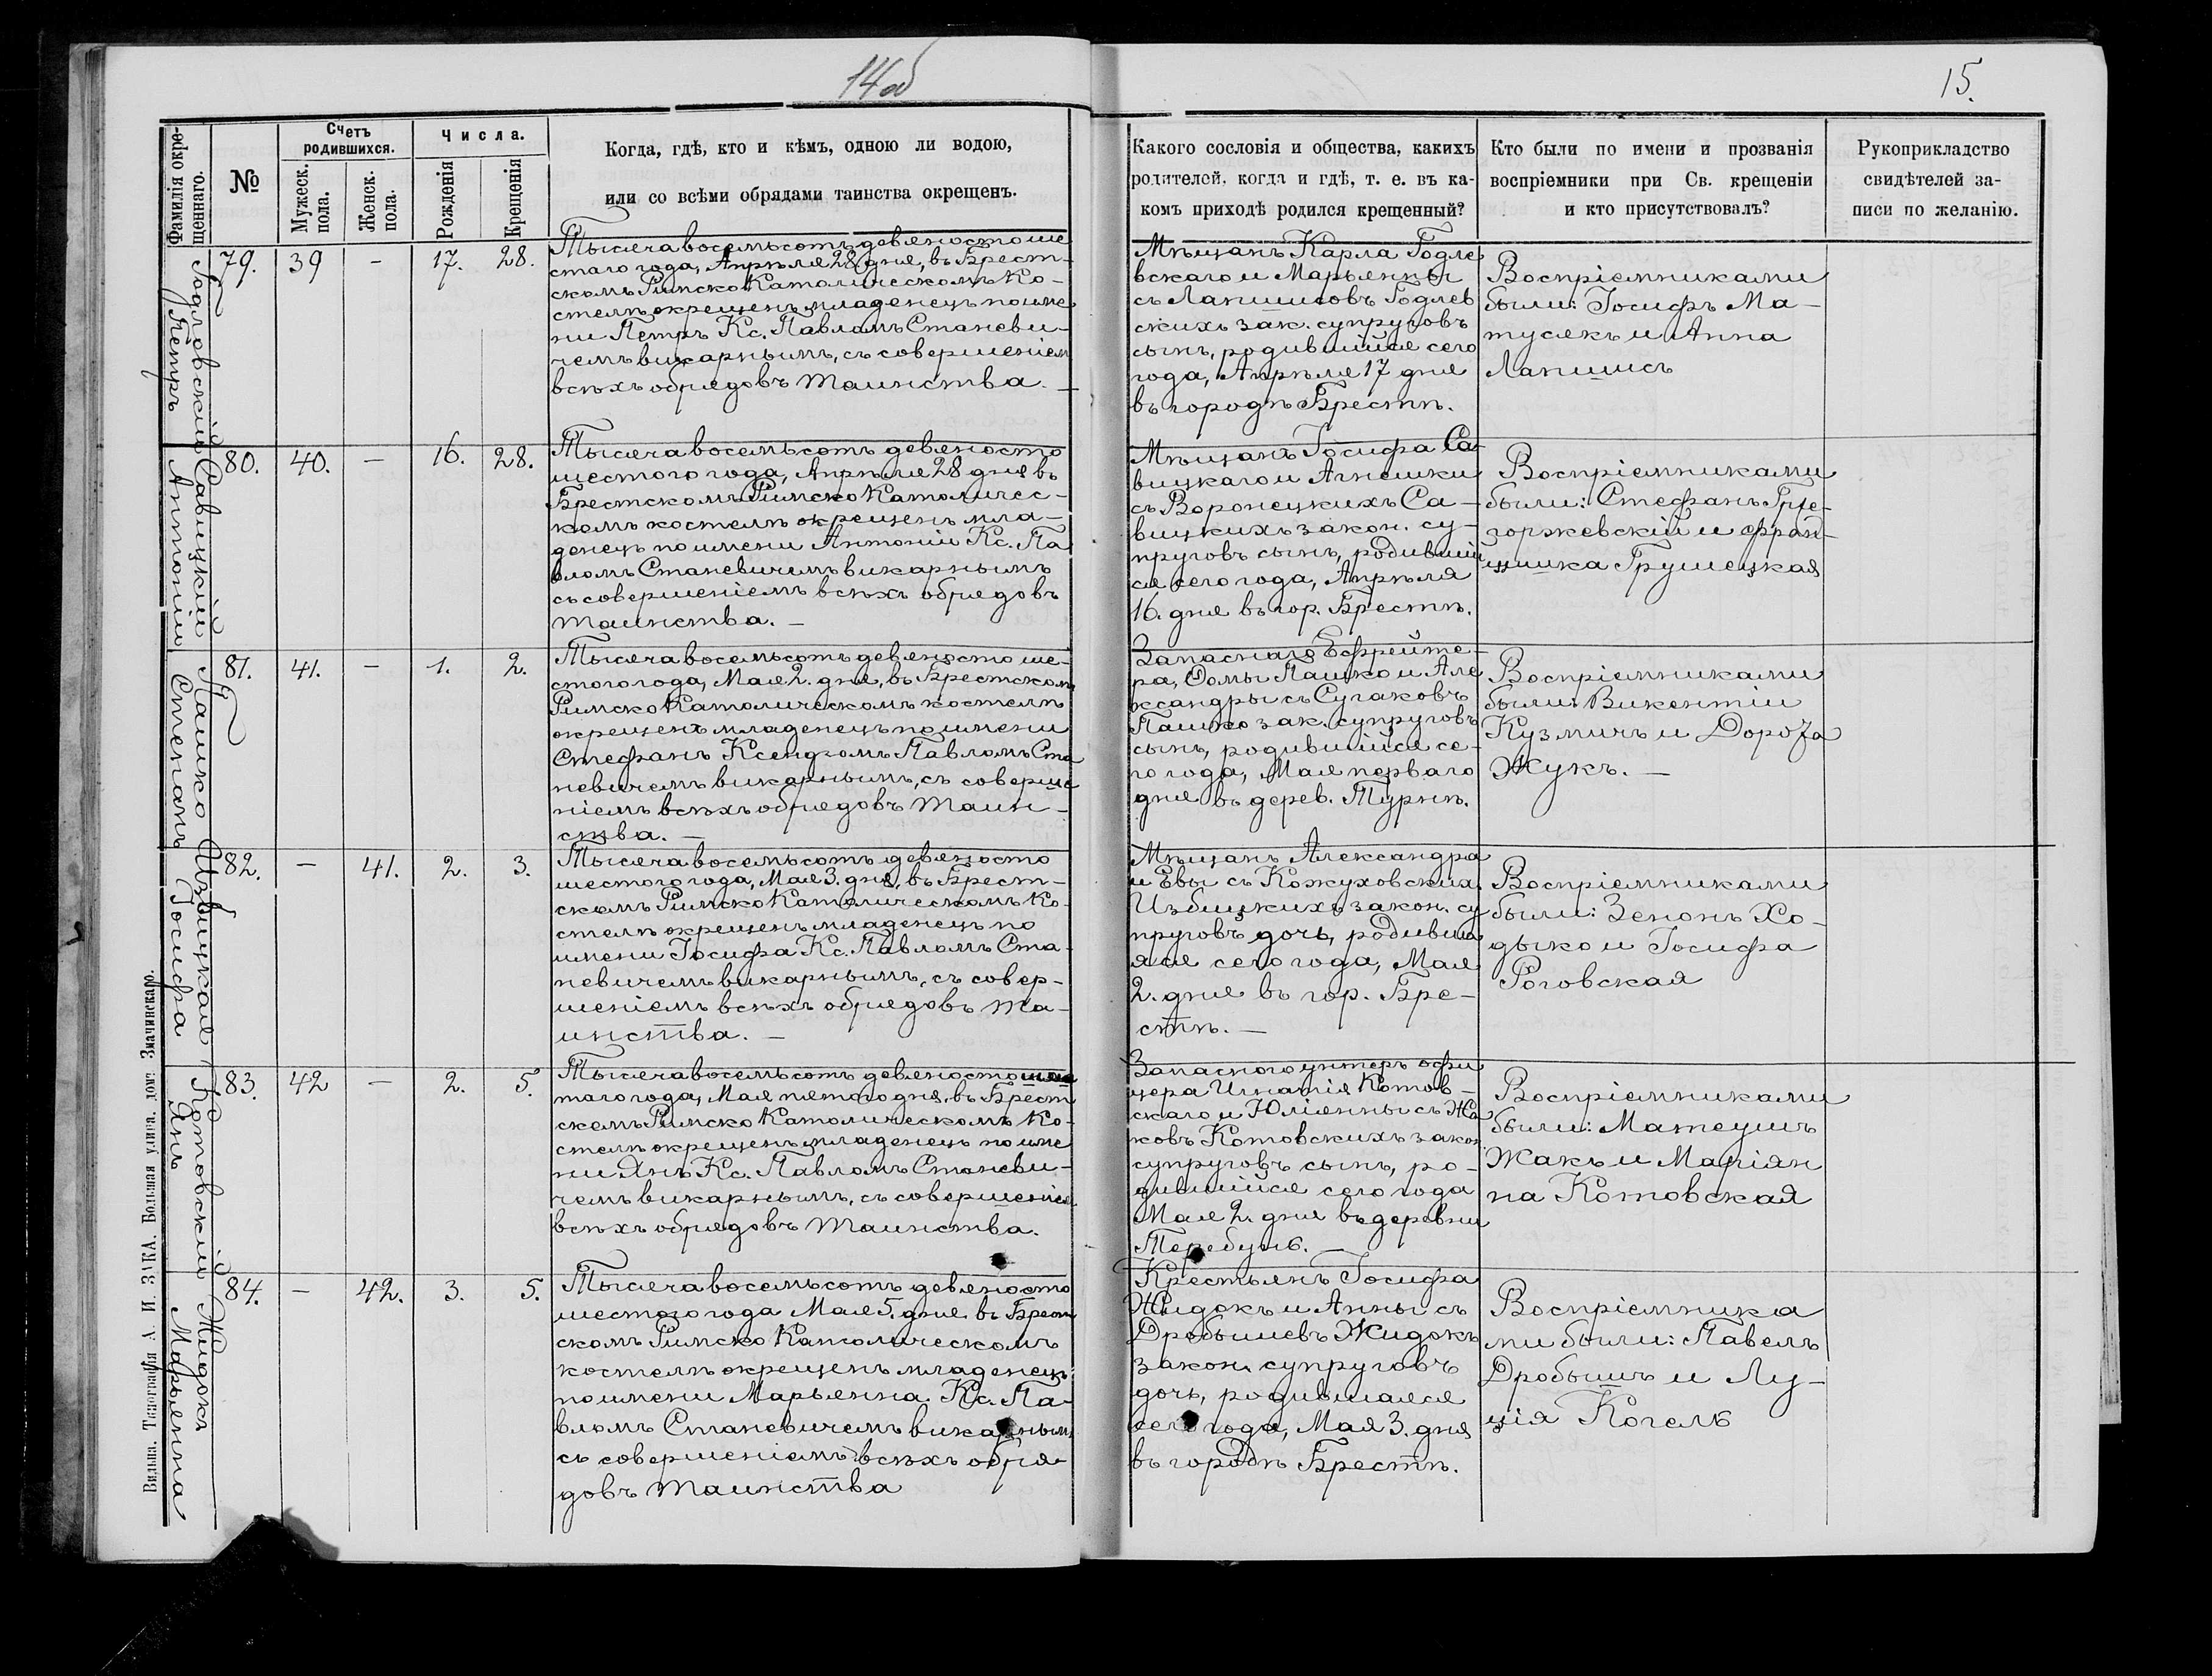 14об
15.
Фамилія окре-
щеннаго.
№
Счетъ
родившихся.
Мужеск.
пола.
Женск.
пола.
Числа.
Рожденія
Крещенія
Когда, гдѣ, кто и кѣмъ, одною ли водою,
или со всѣми обрядами таинства окрещенъ.
Какого сословія и общества, какихъ
родителей, когда и гдѣ, т. е. въ ка-
комъ приходѣ родился крещенный?
Кто были по имени и прозванія
воспріемники при Св. крещеніи
и кто присутствовалъ?
Рукоприкладство
свидѣтелей за-
писи по желанію.
Годлевскій
Петръ
79. 39 - 17. 28.
Тысяча восемьсотъ девяносто ше
стаго года, Апрѣля 28 дня, въ Брест-
скомъ Римско Католическомъ Ко-
стелѣ окрещенъ младенецъ по име
ни Петръ Кс. Павломъ Станеви-
чемъ викарнымъ, съ совершеніем
всѣхъ обрядовъ таинства. —
Мѣщанъ Карла Годле
вскаго и Марьянны
съ Лапшисовъ Годлев
скихъ зак. супруговъ
сынъ, родившійся сего
года, Апрѣля 17 дня
въ городѣ Брестѣ.
Воспріемниками
были: Іосифъ Ма-
тусекъ и Анна
Лапшисъ
Савицкій
Антоній
80. 40. - 16. 28.
Тысяча восемьсотъ девяносто
шестого года, Апрѣля 28 дня въ
Брестскомъ Римско Католичес-
комъ костелѣ окрещенъ мла-
денецъ по имени Антоній Кс. Па
вломъ Станевичемъ викарнымъ
съ совершеніемъ всѣхъ обрядовъ
таинства. —
Мѣщанъ Іосифа Са-
вицкаго и Агнешки
съ Воронецкихъ Са-
вицкихъ закон. су-
пруговъ сынъ, родившій
ся сего года, Апрѣля
16. дня въ гор. Брестѣ.
Воспріемниками
были: Стефанъ Грже-
горжевскій и Фран-
цишка Грушецкая
Пашко
Степанъ
81. 41. - 1. 2.
Тысяча восемьсотъ девяносто ше-
стого года, Мая 2. дня, въ Брестскомъ
Римско Католическомъ костелѣ
окрещенъ младенецъ по имени
Стефанъ Ксендзомъ Павломъ Ста
невичемъ викарнымъ, съ соверше
ніемъ всѣхъ обрядовъ таин-
ства. —
Запаснаго Ефрейто-
ра, Ѳомы Пашко и Але
ксандры съ Сугаковъ
Пашко зак. супруговъ
сынъ, родившійся се-
го года, Мая перваго
дня въ дерев. Турнѣ.
Воспріемниками
были: Викентій
Кузмичъ и Дорота
Жукъ. —
Избицкая
Іосифа
82. - 41. 2. 3.
Тысяча восемьсотъ девяносто
шестого года, Мая 3. дня, въ Брест-
скомъ Римско Католическомъ Ко-
стелѣ окрещенъ младенецъ по
имени Іосифа Кс. Павломъ Ста-
невичемъ викарнымъ, съ совер-
шеніемъ всѣхъ обрядовъ та-
инства. —
Мѣщанъ Александра
и Евы съ Кожуховских
Избицкихъ закон. су
пруговъ дочь, родивша
яся сего года, Мая
2. дня въ гор. Бре-
стѣ. —
Воспріемниками
были: Зенонъ Хо-
дыко и Іосифа
Роговская
Котовскій
Янъ
83. 42 - 2. 5.
Тысяча восемьсотъ девяносто шес
таго года, Мая пятого дня, въ Брест
скомъ Римско Католическомъ Ко-
стелѣ окрещенъ младенецъ по име
ни Янъ Кс. Павломъ Станеви-
чемъ викарнымъ, съ совершеніем
всѣхъ обрядовъ таинства.
Запасного унтеръ офи
цера Игнатія Котов-
скаго и Юліянны съ Жа
ковъ Котовскихъ закон
супруговъ сынъ, ро-
дившійся сего года
Мая 2. дня въ деревни
Теребунь. —
Воспріемниками
были: Матеушъ
Жакъ и Маріян
на Котовская
Жидокъ
Марьянна
84. - 42. 3. 5.
Тысяча восемьсотъ девяносто
шестого года Мая 5. дня въ Брест
скомъ Римско Католическомъ
костелѣ окрещенъ младенецъ
по имени Марьянна. Кс. Па-
вломъ Станевичемъ викарнымъ
съ совершеніемъ всѣхъ обря-
довъ таинства
Крестьянъ Іосифа
Жидокъ и Анны съ
Дробышевъ Жидокъ
закон. супруговъ
дочь, родившаяся
сего года, Мая 3. дня
въ городѣ Брестѣ.
Воспріемника
ми были: Павелъ
Дробышъ и Лу-
ція Когель
Вильна. Типографія А. И. ЗАКА. Большая улица, дом. Значинскаго.